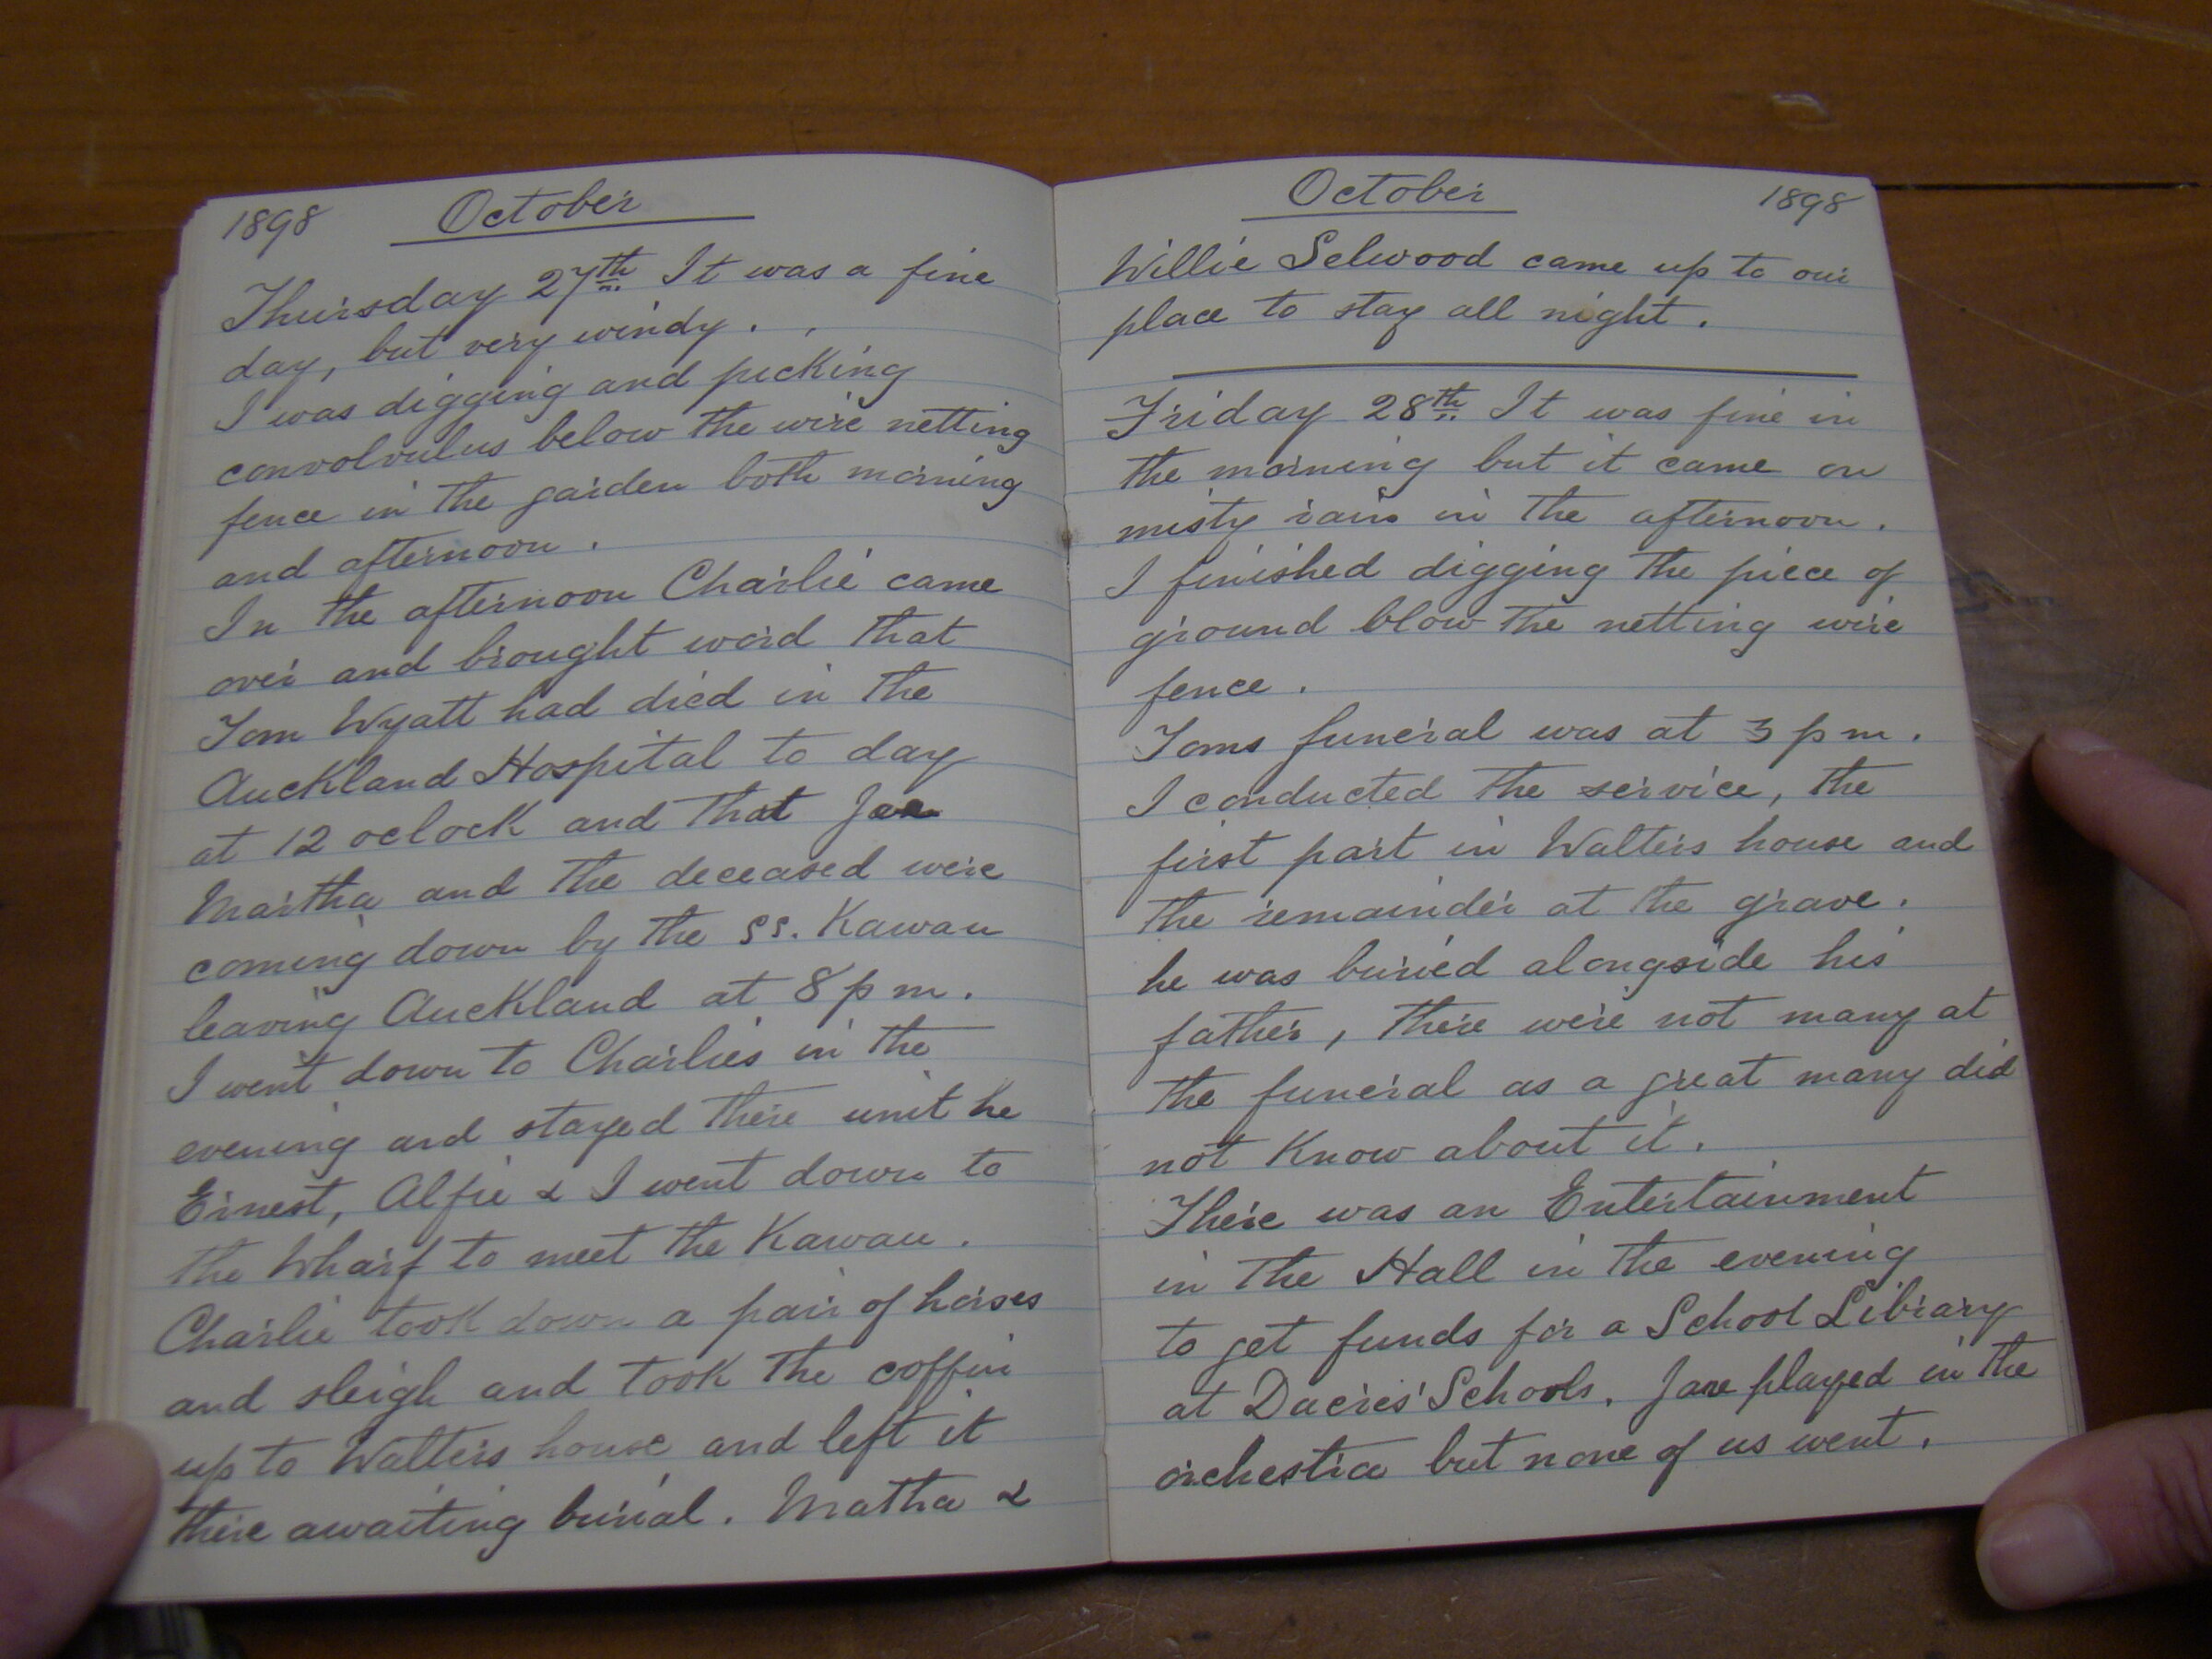 1898 October
Thursday 27th It was a fine
day, but very windy.
I was digging and picking
convolvulus below the wire netting
fence in the garden both morning
and afternoon.
In the afternoon Charlie came
over and brought word that
Tom Wyatt had died in the
Auckland Hospital to day
at 12 oclock and that
Martha and the deceased were
coming down by the ss. Kawau
leaving Auckland at 8 p m.
I went down to Charlies in the
evening and stayed there unit he
Ernest, Alfie & I went down to
the Wharf to meet the Kawau.
Charlie took down a pair of horses
and sleigh and took the coffin
up to Walters house and left it
there awaiting burial. Matha &
October 1898
Willie Selwood came up to our
place to stay all night.
Friday 28th It was fine in
the morning but it came on
misty rain in the afternoon.
I finished digging the piece of
ground blow the netting wire
fence.
Toms funeral was at 3 p m.
I conducted the service, the
first part in Walters house and
the remainder at the grave.
he was buried alongside his
father, there were not many at
the funeral as a great many did
not know about it.
There was an Entertainment
in the Hall in the evening
to get funds for a School Library
at Dacres' Schools. Jane played in the
orchestra but none of us went.